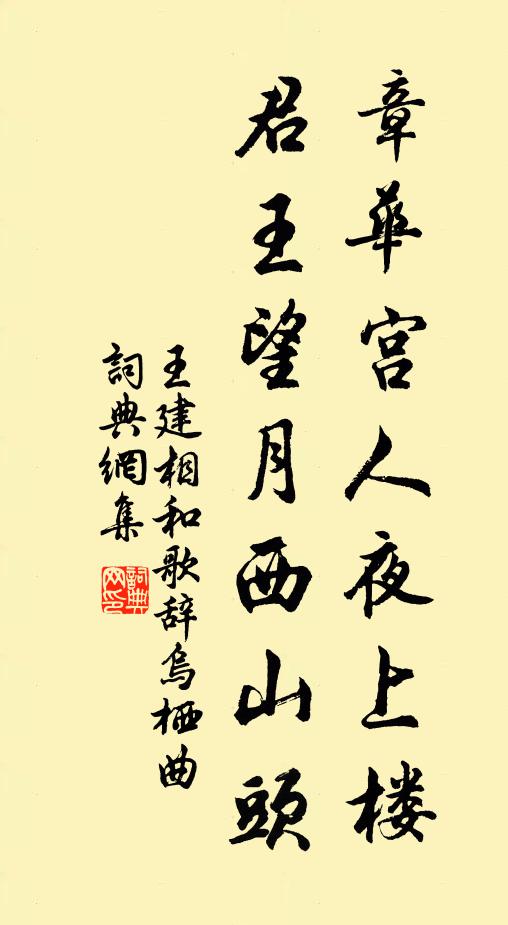 章華宫人夜上楼
君王望月西山頭
王建相和歌辞烏栖曲
詞典網集
詞典
网印